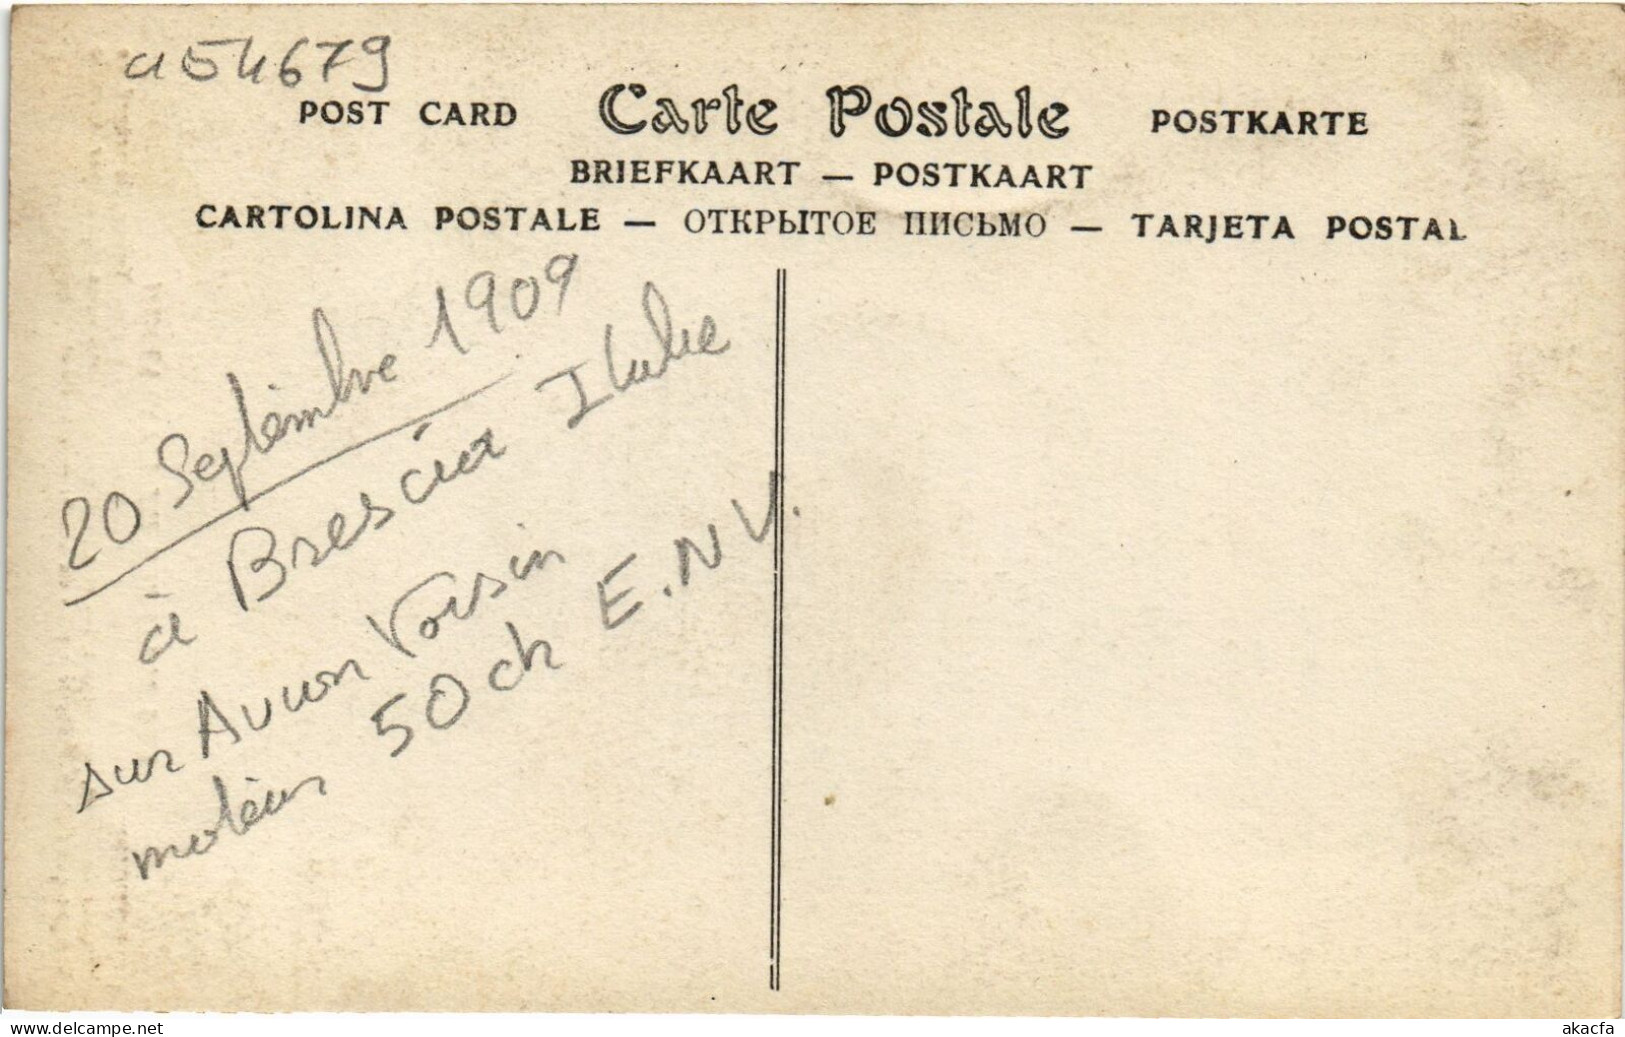 a54679
POST CARD Carte Postale POSTKARTE
BRIEFKAART — POSTKAART
CARTOLINA POSTALE — ОТКРЫТОЕ ПИСЬМО — TARJETA POSTAL
20 Septèmbre 1909
à Brescia Italie
sur Avion Voisin
motèur 50 ch E.N.V.
www.delcampe.net
akacfa